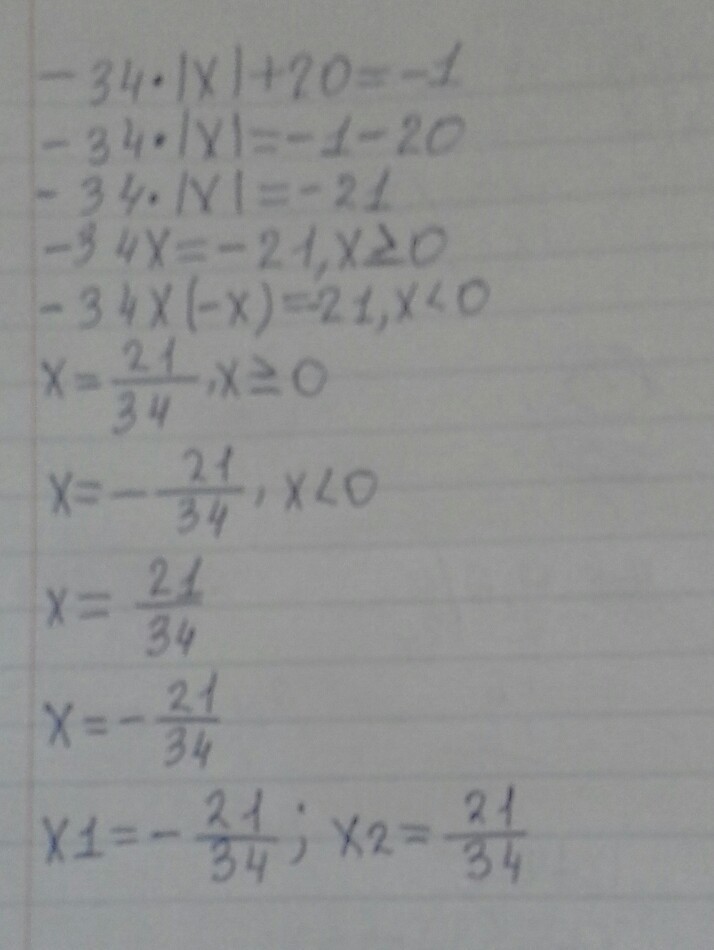 -34·|x|+20=-1
-34·|x|=-1-20
-34·|x|=-21
-34x=-21,x≥0
-34x(-x)=-21,x<0
x=21/34,x≥0
x=-21/34,x<0
x=21/34
x=-21/34
x1=-21/34; x2=21/34